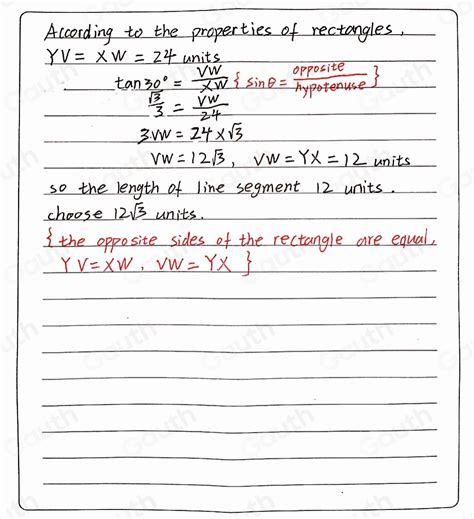 According to the properties of rectangles,
YV = XW = 24 units
tan30° = VW/XW { sinθ = opposite/hypotenuse }
√3/3 = VW/24
3VW = 24×√3
VW = 12√3, VW = YX = 12 units
so the length of line segment 12 units.
choose 12√3 units.
{ the opposite sides of the rectangle are equal,
YV = XW, VW = YX }
Gauth